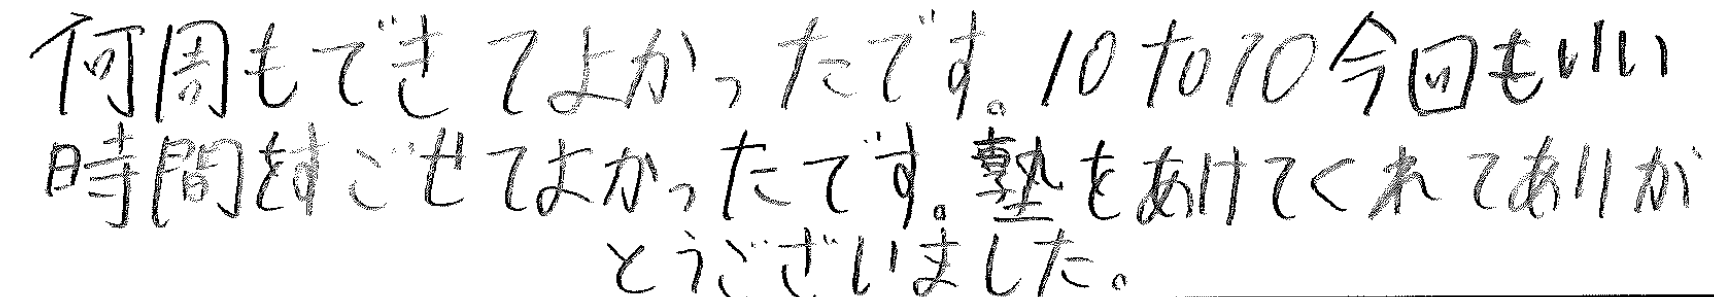 何周もできてよかったです。10to10今回もいい
時間をすごせてよかったです。塾をあけてくれてありが
とうございました。